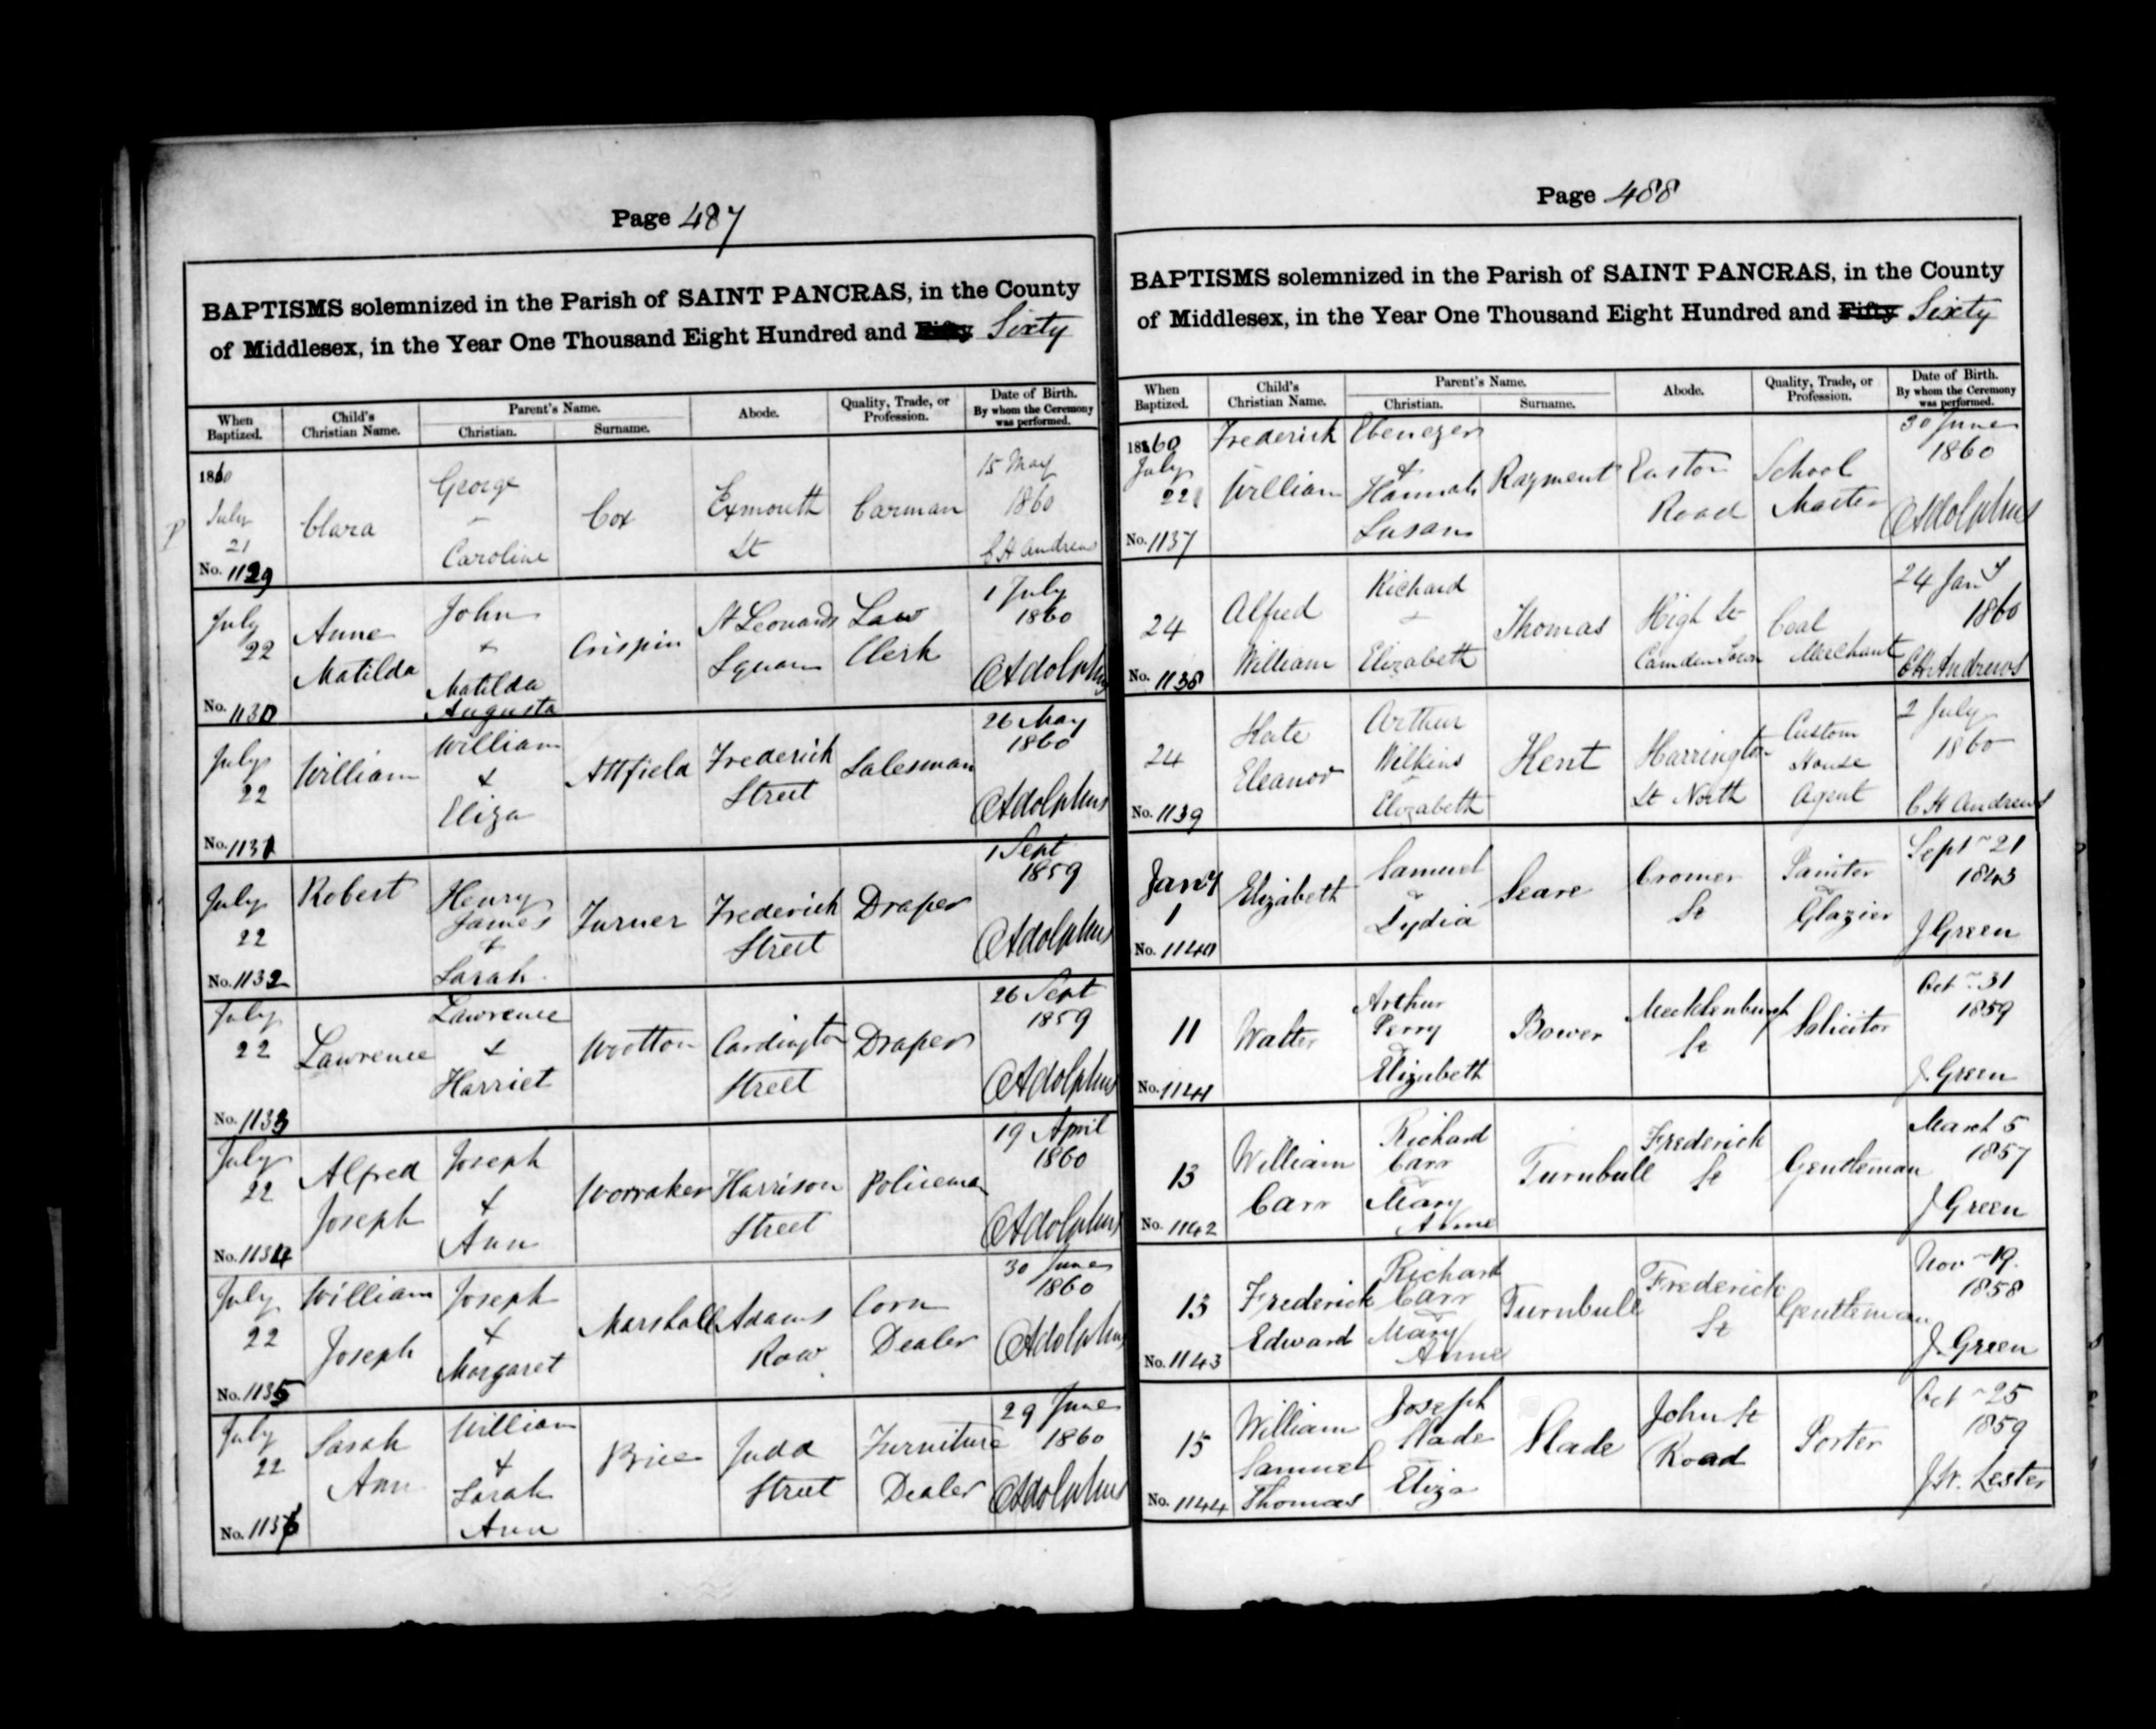 Page 487
BAPTISMS solemnized in the Parish of SAINT PANCRAS, in the County
of Middlesex, in the Year One Thousand Eight Hundred and Fifty Sixty
When Baptized. Child's Christian Name. Parent's Name. Christian. Surname. Abode. Quality, Trade, or Profession. Date of Birth. By whom the Ceremony was performed.
1860 July 21 No. 1129 Clara George Caroline Cox Exmouth St Carman 15 May 1860 C H Andrews
July 22 No. 1130 Anne Matilda John + Matilda Augusta Crispin St Leonards Square Law Clerk 1 July 1860 C Adolphus
July 22 No. 1131 William William & Eliza Attfield Frederick Street Salesman 26 May 1860 C Adolphus
July 22 No. 1132 Robert Henry James + Sarah Turner Frederick Street Draper 1 Sept 1859 C Adolphus
July 22 No. 1133 Lawrence Lawrence & Harriet Wootton Cardington Street Draper 26 Sept 1859 C Adolphus
July 22 No. 1134 Alfred Joseph Joseph & Ann Worraker Harrison Street Policeman 19 April 1860 C Adolphus
July 22 No. 1135 William Joseph Joseph & Margaret Marshall Adams Row Corn Dealer 30 June 1860 C Adolphus
July 22 No. 1136 Sarah Ann William & Sarah Ann Price Judd Street Furniture Dealer 29 June 1860 C Adolphus
Page 488
BAPTISMS solemnized in the Parish of SAINT PANCRAS, in the County
of Middlesex, in the Year One Thousand Eight Hundred and Fifty Sixty
When Baptized. Child's Christian Name. Parent's Name. Christian. Surname. Abode. Quality, Trade, or Profession. Date of Birth. By whom the Ceremony was performed.
1860 July 22 No. 1137 Frederick William Ebenezer & Hannah Susan Rayment Euston Road School Master 30 June 1860 C Adolphus
24 No. 1138 Alfred William Richard + Elizabeth Thomas High St Camden Town Coal Merchant 24 Jany 1860 C H Andrews
24 No. 1139 Kate Eleanor Arthur Wilkins Elizabeth Kent Harrington St North Custom House Agent 2 July 1860 C H Andrews
Jany 1 No. 1140 Elizabeth Samuel Lydia Seare Cromer St Painter Glazier Sept 21 1843 J Green
11 No. 1141 Walter Arthur Perry Elizabeth Bower Mecklenburgh St Solicitor Oct 31 1859 J. Green
13 No. 1142 William Carr Richard Carr Mary Anne Turnbull Frederick St Gentleman March 5 1857 J Green
13 No. 1143 Frederick Edward Richard Carr Mary Anne Turnbull Frederick St Gentleman Nov 19. 1858 J. Green
15 No. 1144 William Samuel Thomas Joseph Slade Eliza Slade John St Road Porter Oct 25 1859 J. W. Lester